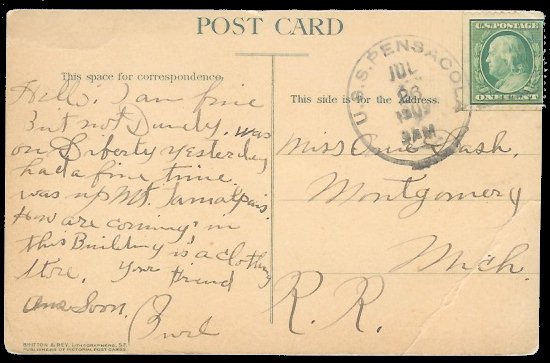 POST CARD
This space for correspondence.
Hello! I am fine
But not Dandy. was
on Liberty yesterday
had a fine time
was up Mt. Tamalpais.
How are coming' in
this Building is a clothing
store. Your friend
Ans Soon.
BRITTON & REY, LITHOGRAPHERS, S.F.
PUBLISHERS OF PICTORIAL POST CARDS
U.S.S. PENSACOLA
JUL
26
1909
3 AM
U.S. POSTAGE
ONE CENT
This side is for the address.
Miss Cash,
Montgomery
Mich.
R. R.